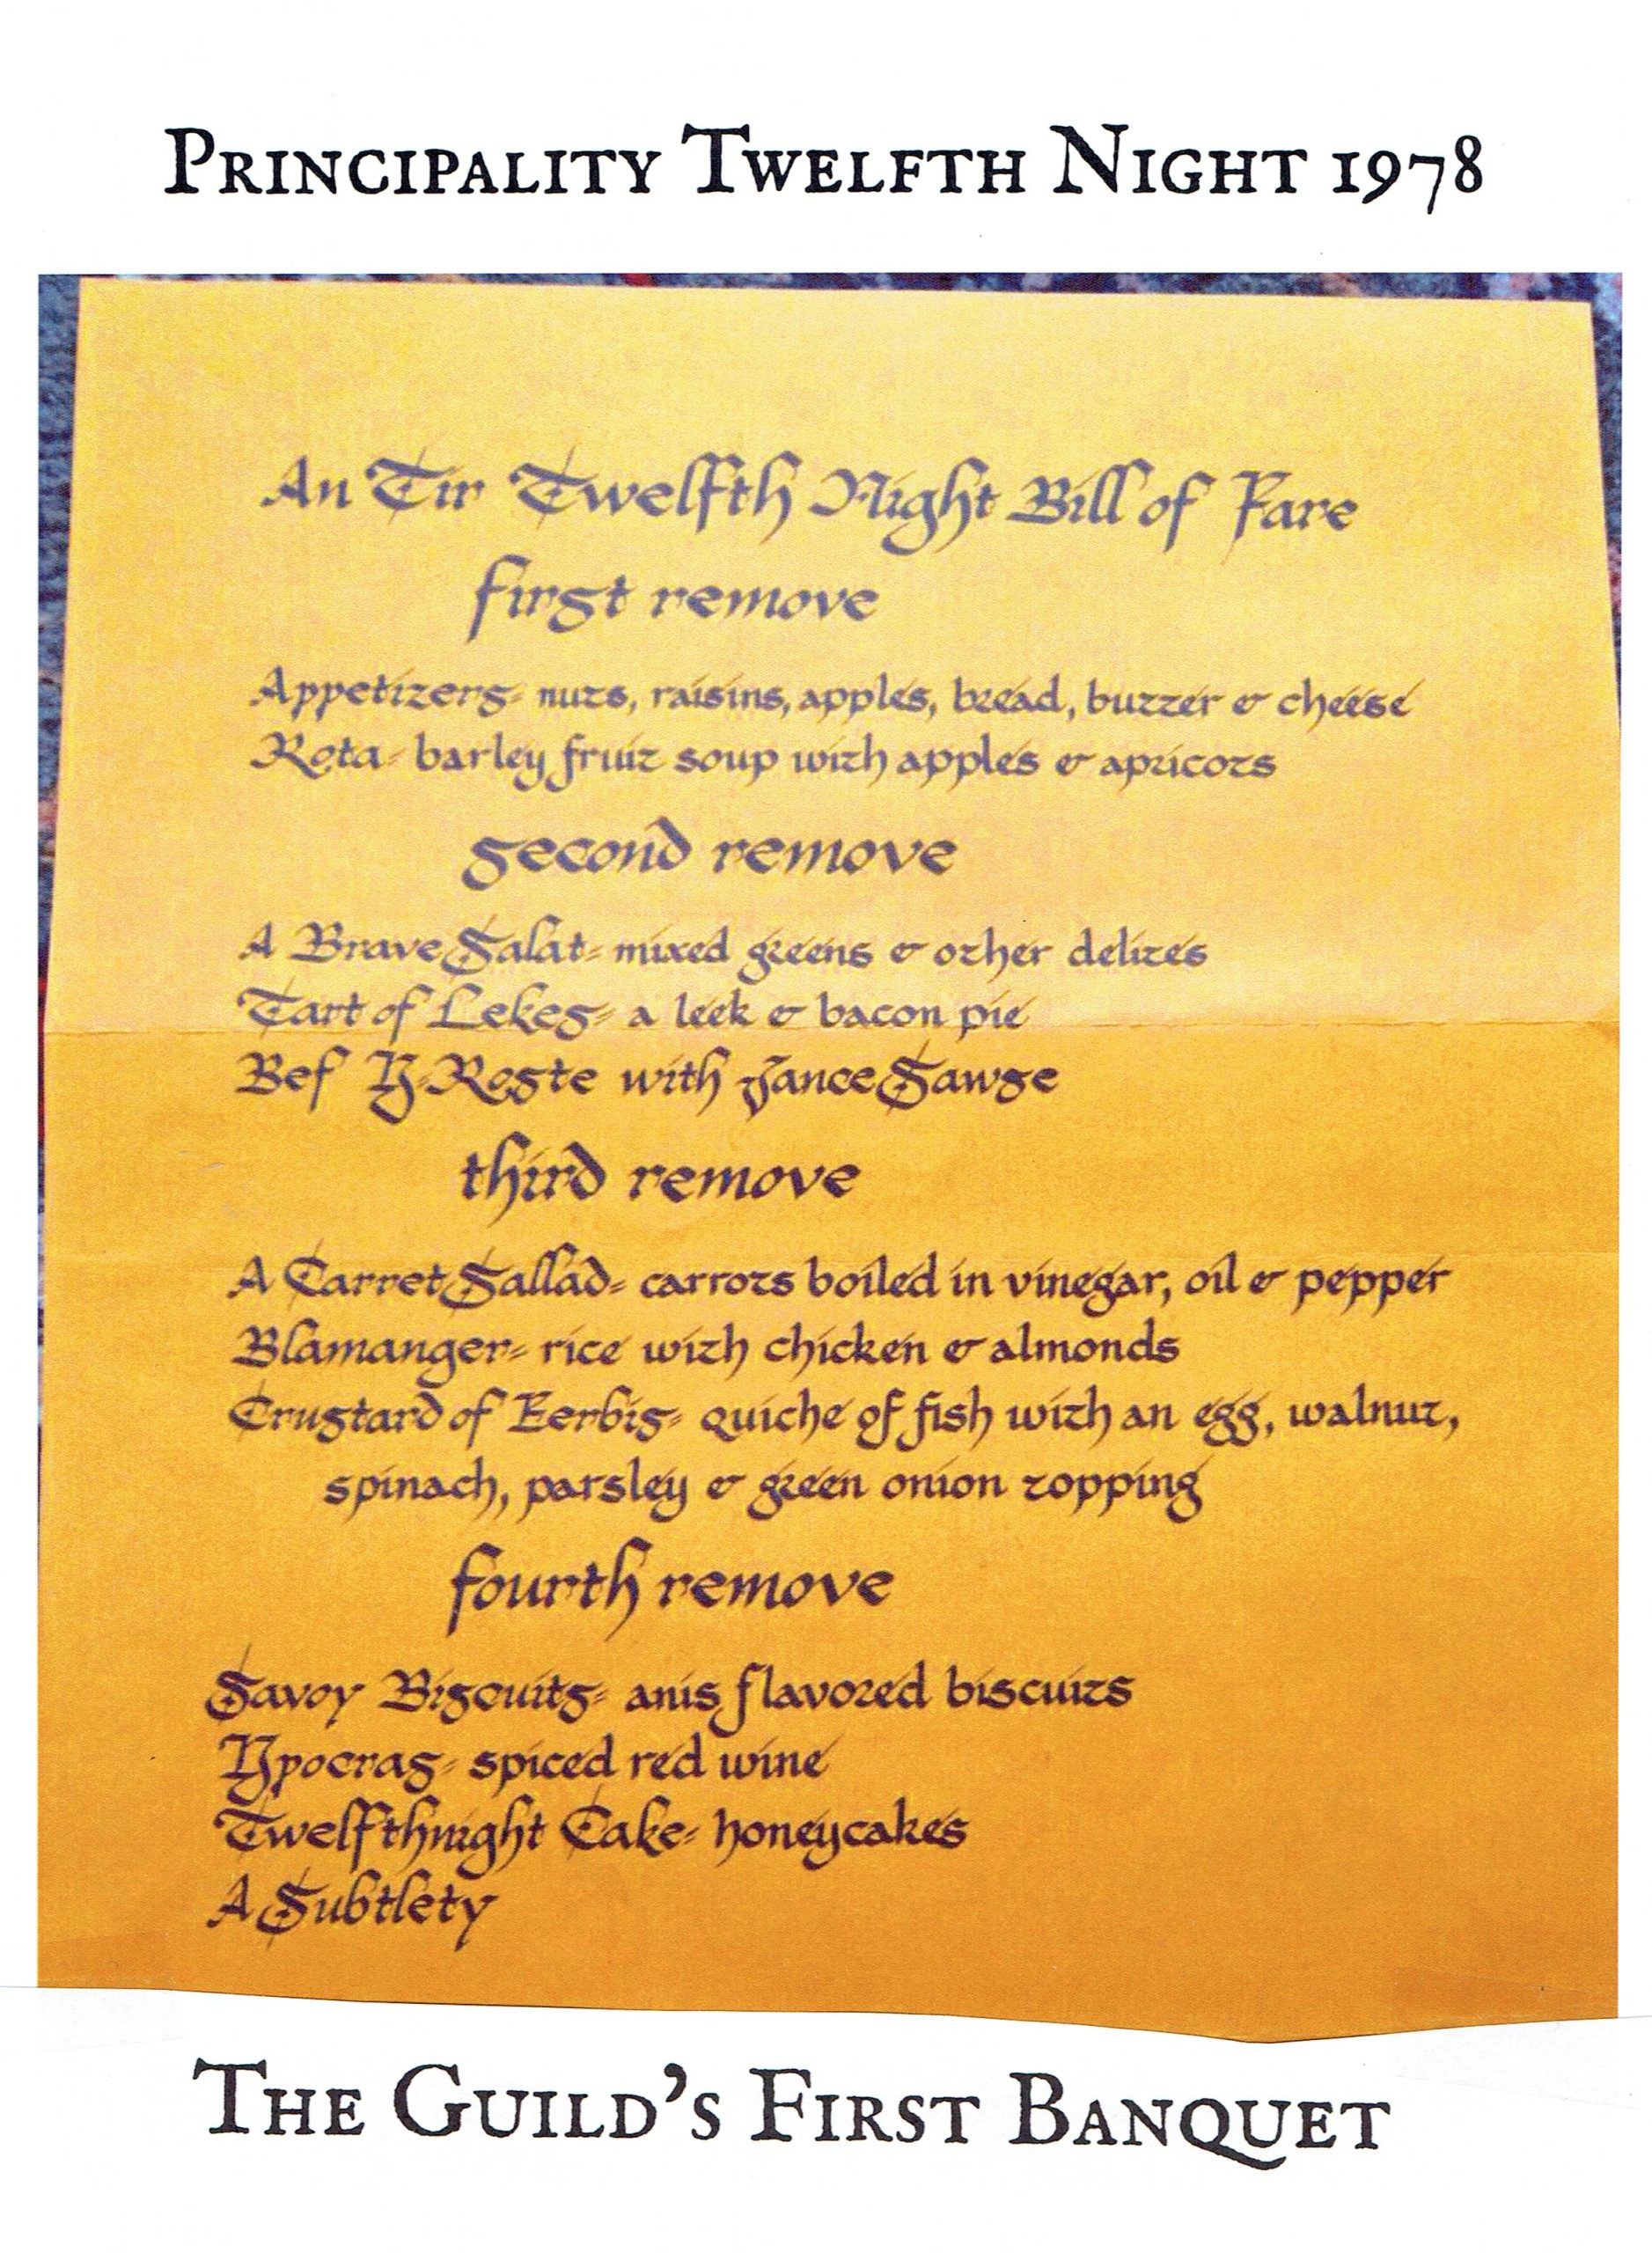 Principality Twelfth Night 1978
An Tir Twelfth Night Bill of Fare
first remove
Appetizers= nuts, raisins, apples, bread, butter & cheese
Rota= barley fruit soup with apples & apricots
second remove
A Brave Salat= mixed greens & other delites
Tart of Lekes= a leek & bacon pie
Bef Y-Roste with Jance Sawse
third remove
A Carret Sallad= carrots boiled in vinegar, oil & pepper
Blamanger= rice with chicken & almonds
Crustard of Eerbis= quiche of fish with an egg, walnut,
spinach, parsley & green onion topping
fourth remove
Savoy Biscuits= anis flavored biscuits
Ypocras= spiced red wine
Twelfthnight Cake= honeycakes
A Subtlety
The Guild's First Banquet